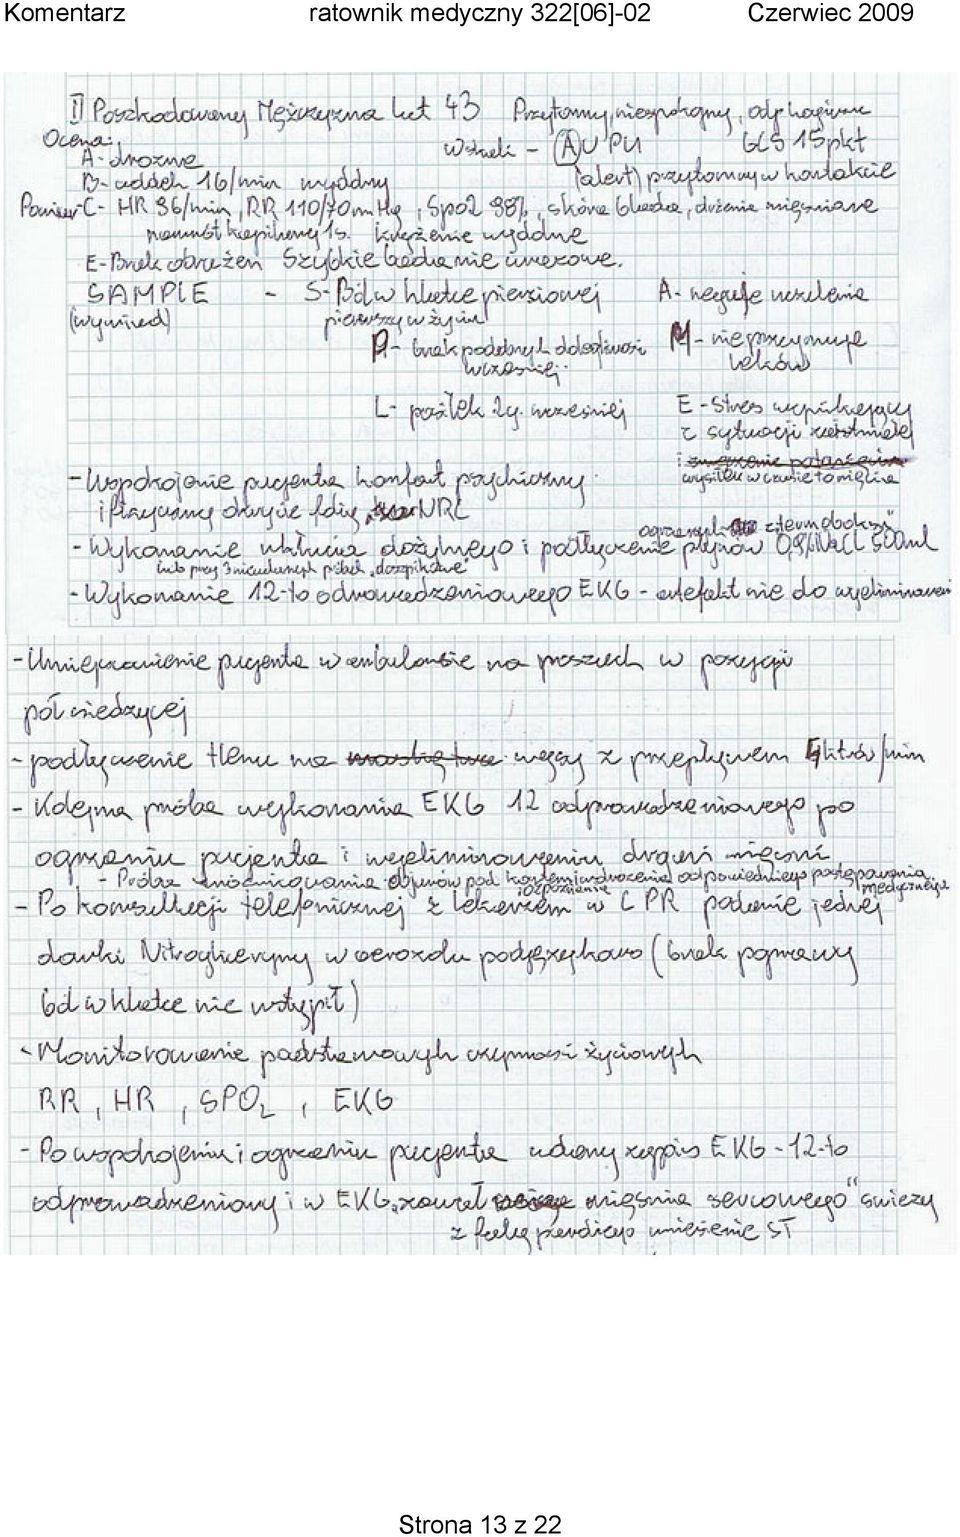 Komentarz ratownik medyczny 322[06]-02 Czerwiec 2009
II Poszkodowany Mężczyzna lat 43 Przytomny, niespokojny, odp logiczne
Ocena:
A- drożne W skali - (A)VPU GCS 15pkt
B- oddech 16/min wydolny (alert) przytomny w kontakcie
Pomiar C- HR 96/min, RR 110/70mmHg, SpO2 98%, skóra blada, drżenie mięśniowe
nawrót kapilarny 1s. krążenie wydolne
E- Brak obrażeń Szybkie badanie urazowe.
SAMPLE - S- Ból w klatce piersiowej A- neguje uczulenia
(wywiad) pierwszy w życiu
P- brak podobnych dolegliwości M- nie przyjmuje
wcześniej. leków
L- posiłek 2g. wcześniej E- stres wynikający
z sytuacji
i
wysiłek w czasie
- Uspokojenie pacjenta komfort psychiczny
i fizyczny okrycie folią NRC
ogrzanych z "termoboksu"
- Wykonanie wkłucia dożylnego i podłączenie płynów 0,9% NaCl 500ml
lub przy 3 nieudanych próbach "doszpikowe"
- Wykonanie 12-to odprowadzeniowego EKG - artefakt nie do wyeliminowania
- Umieszczenie pacjenta w ambulansie na noszach w pozycji
półsiedzącej
- podłączenie tlenu na wąsy z przepływem litrów/min
- Kolejna próba wykonania EKG 12 odprowadzeniowego po
ogrzaniu pacjenta i wyeliminowaniu drgań mięśni
- Próba różnicowania objawów pod kątem wdrożenia odpowiedniego postępowania
i rozpoznanie medycznego
- Po konsultacji telefonicznej z lekarzem w CPR podanie jednej
dawki Nitrogliceryny w aerozolu podjęzykowo (brak poprawy
ból w klatce nie ustąpił)
- Monitorowanie podstawowych czynności życiowych
RR, HR, SPO2, EKG
- Po uspokojeniu i ogrzaniu pacjenta udany zapis EKG - 12-to
odprowadzeniowy i w EKG "zawał mięśnia sercowego" świeży
z falą Pardiego uniesienie ST
Strona 13 z 22